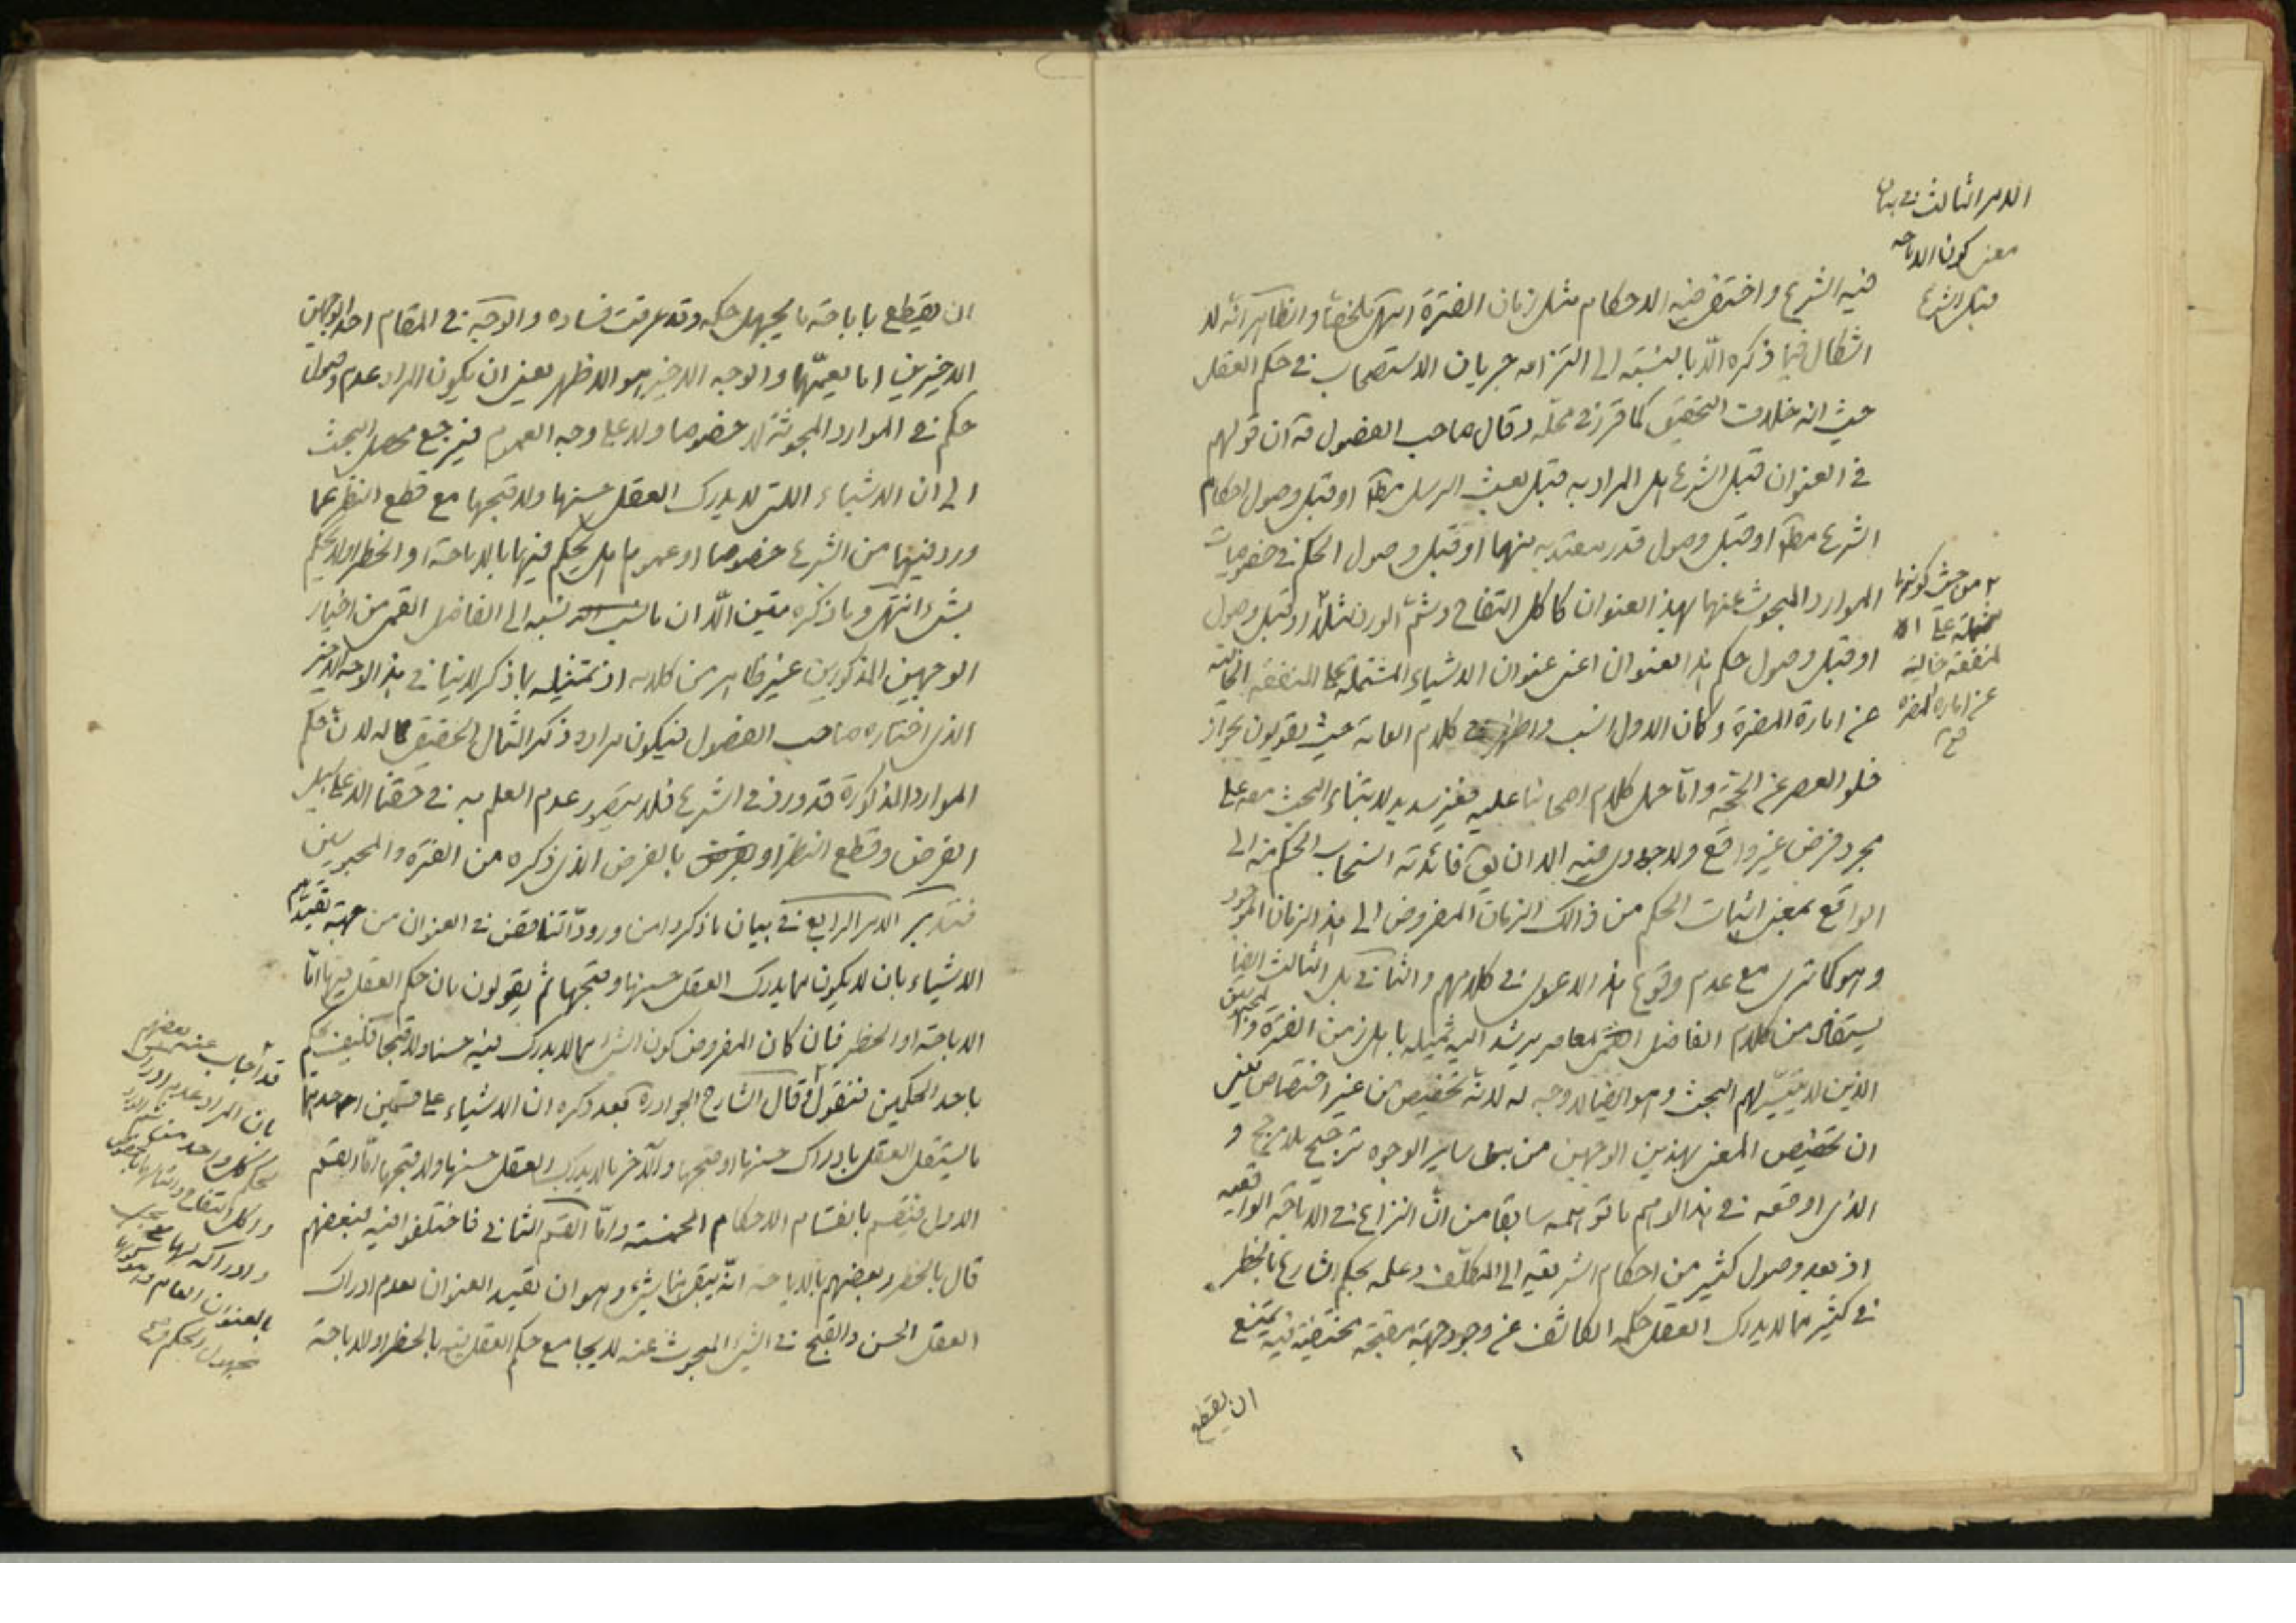 الامر الثالث فى بيان
معنى كون الاباحه
قبل الشرع
فيه الشرع و اختفى فيه الاحكام مثل زمان الفترة انتهى ملخصا و الظاهر انه لا
اشكال فيما ذكره الّا بالنسبة الى التزامه جريان الاستصحاب فى حكم العقل
حيث انه خلاف التحقيق كما قرر فى محلّه و قال صاحب الفصول ره ان قولهم
فى العنوان قبل الشرع هل المراد به قبل بعث الرسل مطلقا او قبل وصول احكام
الشرع مطلقا او قبل وصول قدر معتد به منها او قبل وصول الحكم فى خصوصيات
الموارد المبحوث عنها بهذا العنوان كاكل التفاح و شمّ الورد مثلا او قبل وصول
٢ من حيث كونها
مشتملة على
منفعة خالية
عن امارة المضرة
صح
او قبل وصول حكم هذا العنوان اعنى عنوان الاشياء المشتملة على المنفعة الخالية
عن امارة المضرة و كان الاول انسب و اظهر فى كلام العامة حيث يقولون بجواز
خلو العصر عن الحجّة و امّا حمل كلام اصحابنا عليه فغير سديد لابتناء البحث معه على
مجرد فرض غير واقع و لا جدوى فيه الا ان يق فائدته انسحاب الحكم منه الى
الواقع بمعنى اثبات الحكم من ذالك الزمان المفروض الى هذا الزمان الموجود
و هو كما ترى مع عدم وقوع هذا الدعوى فى كلامهم و الثانى بل الثالث ايضا
يستفاد من كلام الفاضل المعاصر يرشد اليه تمثيله باهل زمن الفترة و المحبوسين
الذين لا يتيسّر لهم البحث و هو ايضا لا وجه له لانه تخصيص من غير اختصاص يعنى
ان تخصيص المعنى بهذين الوجهين من بين ساير الوجوه ترجيح بلا مرجح و
الذى اوقعه فى هذا الوهم ما توهّمه سابقا من انّ النزاع فى الاباحة الواقعيه
اذ بعد وصول كثير من احكام الشريعة الى المكلّف و علمه بحكم الشارع بالحظر
فى كثير مما لا يدرك العقل حكمه الكاشف عن وجود جهة مقبحة مختفية فيه يمتنع
ان يقطع
ان يقطع باباحة ما يجهل حكمه و قد عرفت فساده و الوجه فى المقام احد الوجهين
الاخيرين او ما يعمّهما و الوجه الاخير هو الاظهر يعنى ان يكون المراد عدم وصول
حكم فى الموارد المبحوثة لا خصوصا و لا على وجه العموم فيرجع محصل البحث
الى ان الاشياء التى لا يدرك العقل حسنها و لا قبحها مع قطع النظر عما
ورد فيها من الشرع خصوصا او عموما هل يحكم فيها بالاباحة او الحظر او لا يحكم
بشىء انتهى و ما ذكره متين الّا ان ما نسبه الى الفاضل القمى من اختيار
الوجهين المذكورين غير ظاهر من كلامه اذ تمثيله بما ذكر لا ينافى هذا الوجه الاخير
الذى اختاره صاحب الفصول فيكون مراده ذكر المثال الحقيقى له لان حكم
الموارد المذكورة قد ورد فى الشرع فلا يتصور عدم العلم به فى حقنا الا على سبيل
الفرض و قطع النظر او بالفرض الذى ذكره من الفترة و المحبوسين
فتدبر الامر الرابع فى بيان ما ذكروا من ورود التناقض فى العنوان من جهة تقييدهم
الاشياء بان لا يكون مما يدرك العقل حسنها و قبحها ثم يقولون بان حكم العقل فيها امّا
الاباحة او الحظر فان كان المفروض كون الشىء مما لا يدرك فيه حسنا و لا قبحا فكيف يحكم
باحد الحكمين فنقول قال الشارح الجواد ره بعد ذكره ان الاشياء على قسمين احدهما
ما يستقل العقل بادراك حسنها او قبحها و الآخر ما لا يدرك العقل حسنها و لا قبحها امّا القسم
الاول فينقسم بانقسام الاحكام الخمسة و امّا القسم الثانى فاختلفوا فيه فبعضهم
قال بالحظر و بعضهم بالاباحة انّه يبقى هنا شىء و هو ان تقييد العنوان بعدم ادراك
العقل الحسن و القبح فى الشىء المبحوث عنه لا يجامع حكم العقل فيه بالحظر او الاباحة
قد اجاب عنه بعضهم
بان المراد عدم ادراك
بحكم كل واحد
و اكل التفاح و امثالها بالخصوص
و ادراكه لها
بالعنوان العام و هو كونها
مجهول الحكم